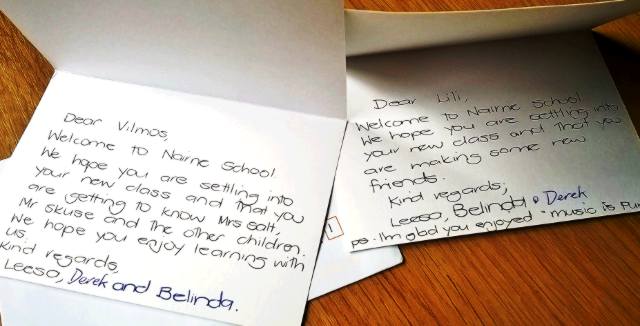 Dear Vilmos,
Welcome to Nairne School
We hope you are settling into
your new class and that you
are getting to know Mrs Salt,
Mr Skuse and the other children.
We hope you enjoy learning with
us
Kind regards,
Leesa, Derek and Belinda.
Dear Lili,
Welcome to Nairne School
We hope you are settling into
your new class and that you
are making some new
friends.
Kind regards,
Leesa, Belinda & Derek
ps. I'm glad you enjoyed "music is Fun